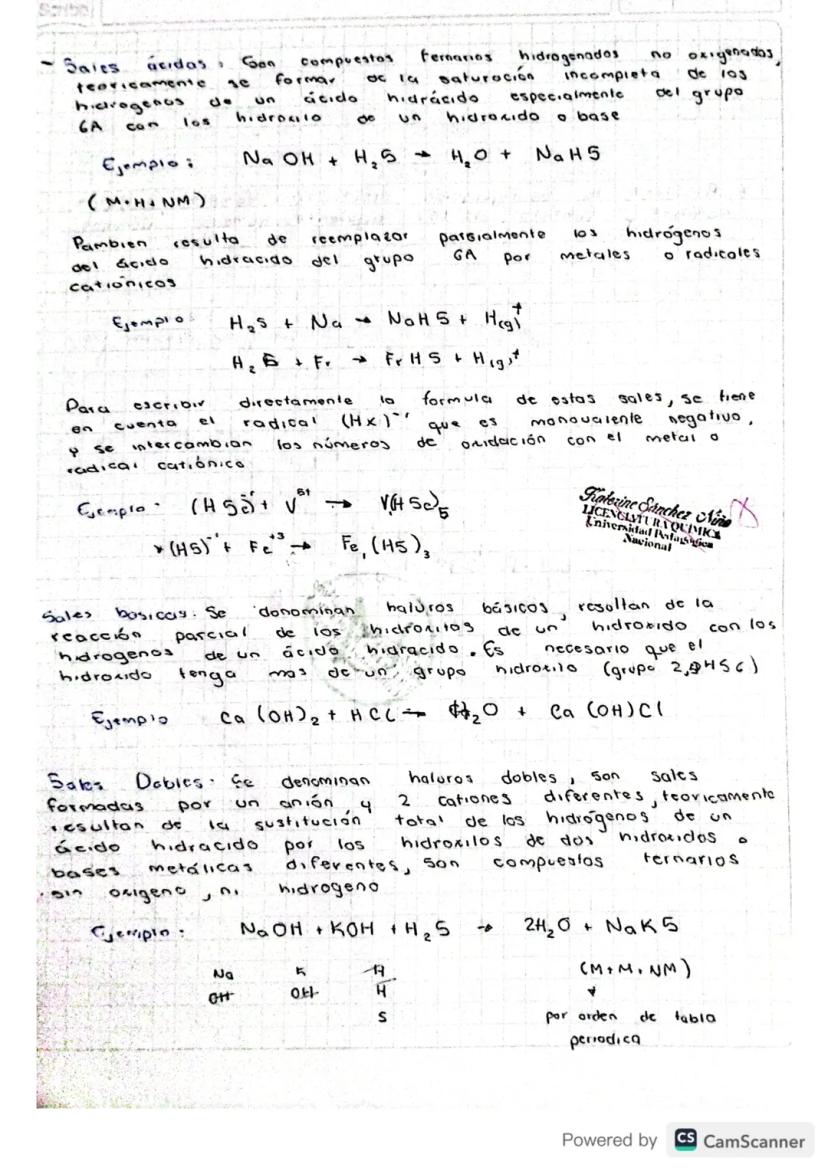 Scribe
- Sales ácidas: Son compuestos ternarios hidrogenados no oxigenados,
teoricamente se forman de la saturación incompleta de los
hidrogenos de un ácido hidrácido especialmente del grupo
6A con los hidroxilo de un hidroxido o base
Ejemplo: NaOH + H₂S → H₂O + NaHS
(M+H+NM)
Tambien resulta de reemplazar parsialmente los hidrógenos
del ácido hidracido del grupo 6A por metales o radicales
catiónicos
Ejemplo: H₂S + Na → NaHS + H(g)↑
H₂S + Fr → FrHS + H(g)↑
Para escribir directamente la formula de estas sales, se tiene
en cuenta el radical (Hx)⁻¹ que es monovalente negativo,
y se intercambian los números de oxidación con el metal o
radical catiónico
Ejemplo: (HSe)⁻¹ + V⁵⁺ → V(HSe)₅
(HS)⁻¹ + Fe⁺³ → Fe₁(HS)₃
Katerine Sánchez Niño
LICENCIATURA QUIMICA
Universidad Pedagógica
Nacional
Sales basicas: Se donominan haluros básicos, resultan de la
reacción parcial de los hidroxilos de un hidroxido con los
hidrogenos de un ácido hidracido. Es necesario que el
hidroxido tenga mas de un grupo hidroxilo (grupo 2,3456)
Ejemplo Ca(OH)₂ + HCl → H₂O + Ca(OH)Cl
Sales Dobles: Se denominan haluros dobles, son sales
formadas por un anión y 2 cationes diferentes, teoricamente
resultan de la sustitución total de los hidrógenos de un
ácido hidracido por los hidroxilos de dos hidroxidos o
bases metálicas diferentes, son compuestos ternarios
sin oxigeno, ni hidrogeno
Ejemplo: NaOH + KOH + H₂S → 2H₂O + NaKS
Na K H (M+M+NM)
OH OH H
S por orden de tabla
periodica
Powered by CS CamScanner